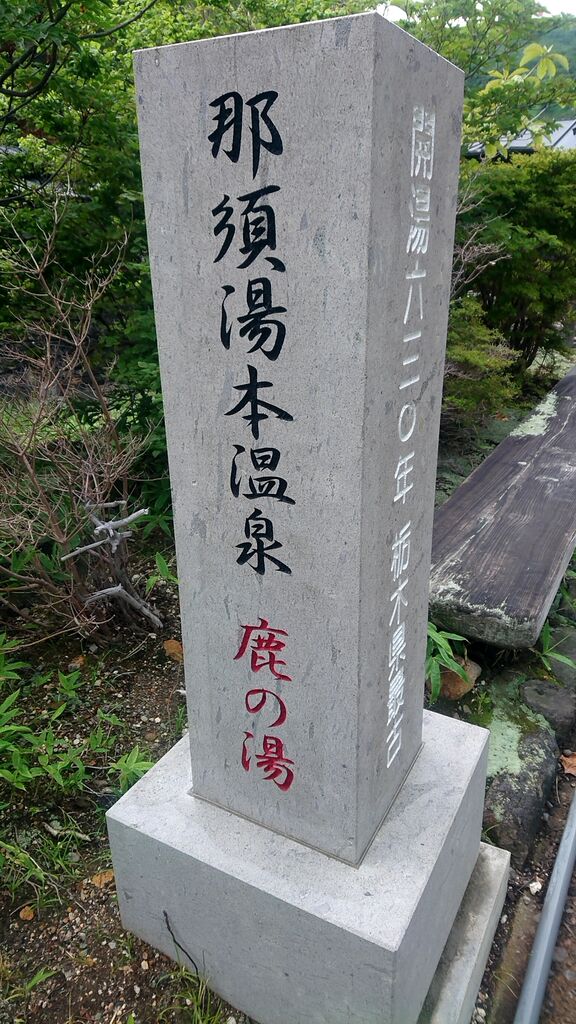 那須湯本温泉 鹿の湯
開湯六三〇年 栃木県最古